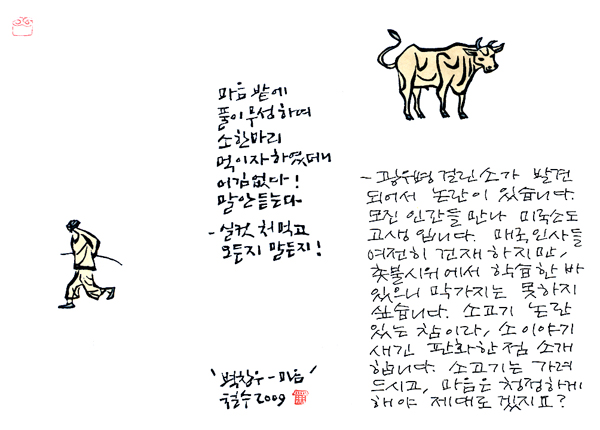 마음 밭에
풀이 무성하여
소 한마리
먹이자 하였더니
어김없다!
말 안듣는다.
- 실컷 처먹고
오든지 말든지!
'벽창우 - 마음'
철수 2009
- 광우병 걸린 소가 발견
되어서 논란이 있습니다.
모진 인간들 만나 미국소도
고생입니다. 매국인사들
여전히 건재하지만,
촛불시위에서 학습한 바
있으니 막가지는 못하지
싶습니다. 소고기 논란
있는 참이라, 소 이야기
새긴 판화 한 점 소개
합니다. 소고기는 가려
드시고, 마음은 청정하게
해야 제대로 겠지요?